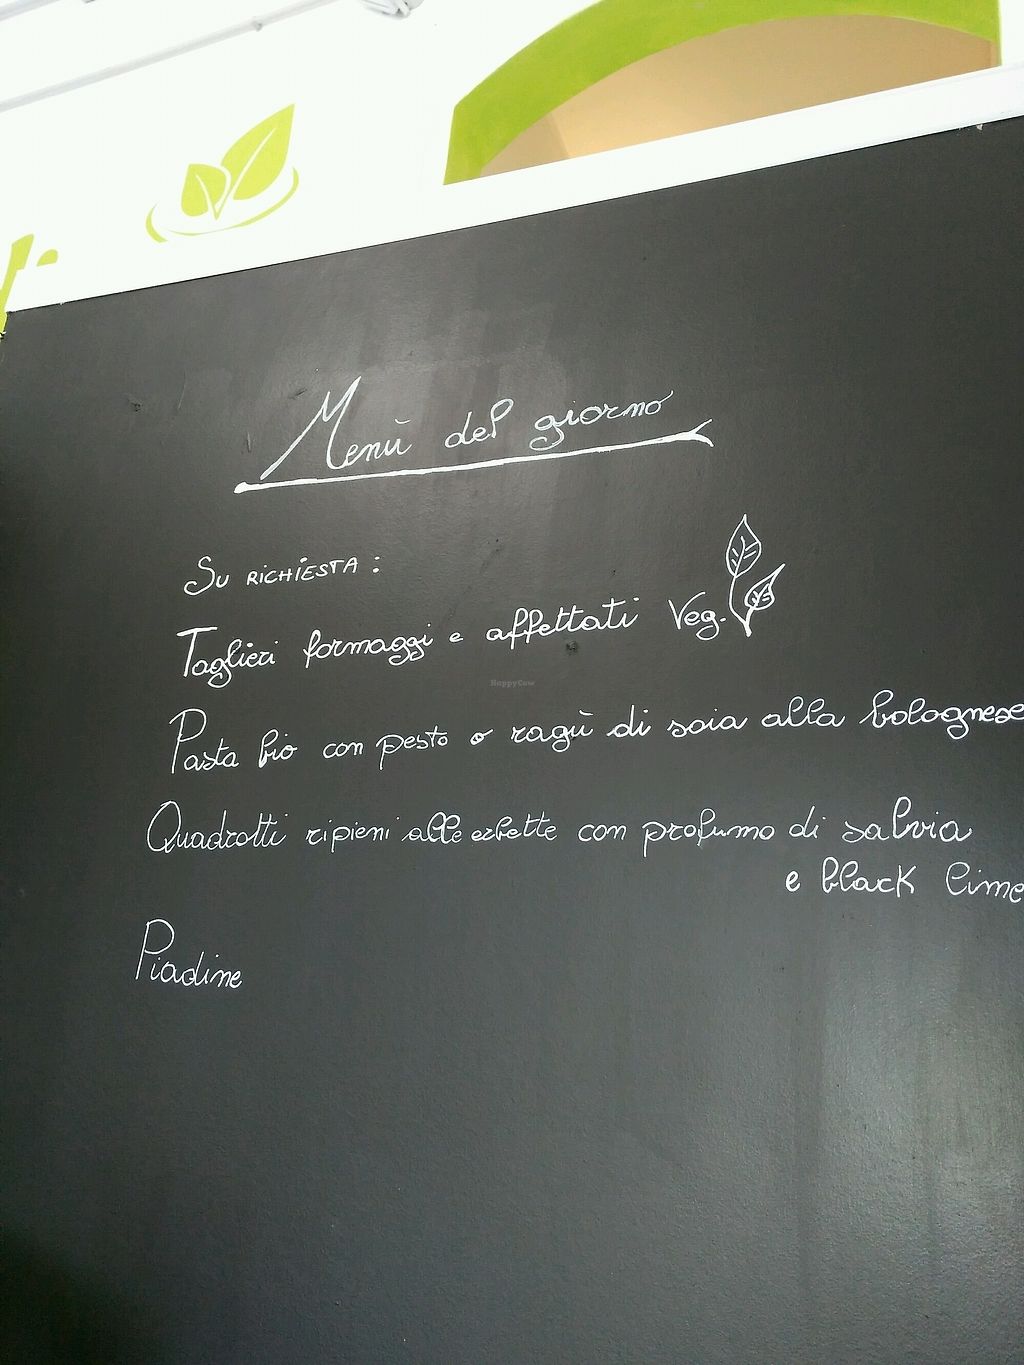 Menù del giorno
Su RICHIESTA :
Taglieri formaggi e affettati Veg.
Pasta bio con pesto o ragù di soia alla bolognese
Quadrotti ripieni alle erbette con profumo di salvia
e black lime
Piadine
HappyCow